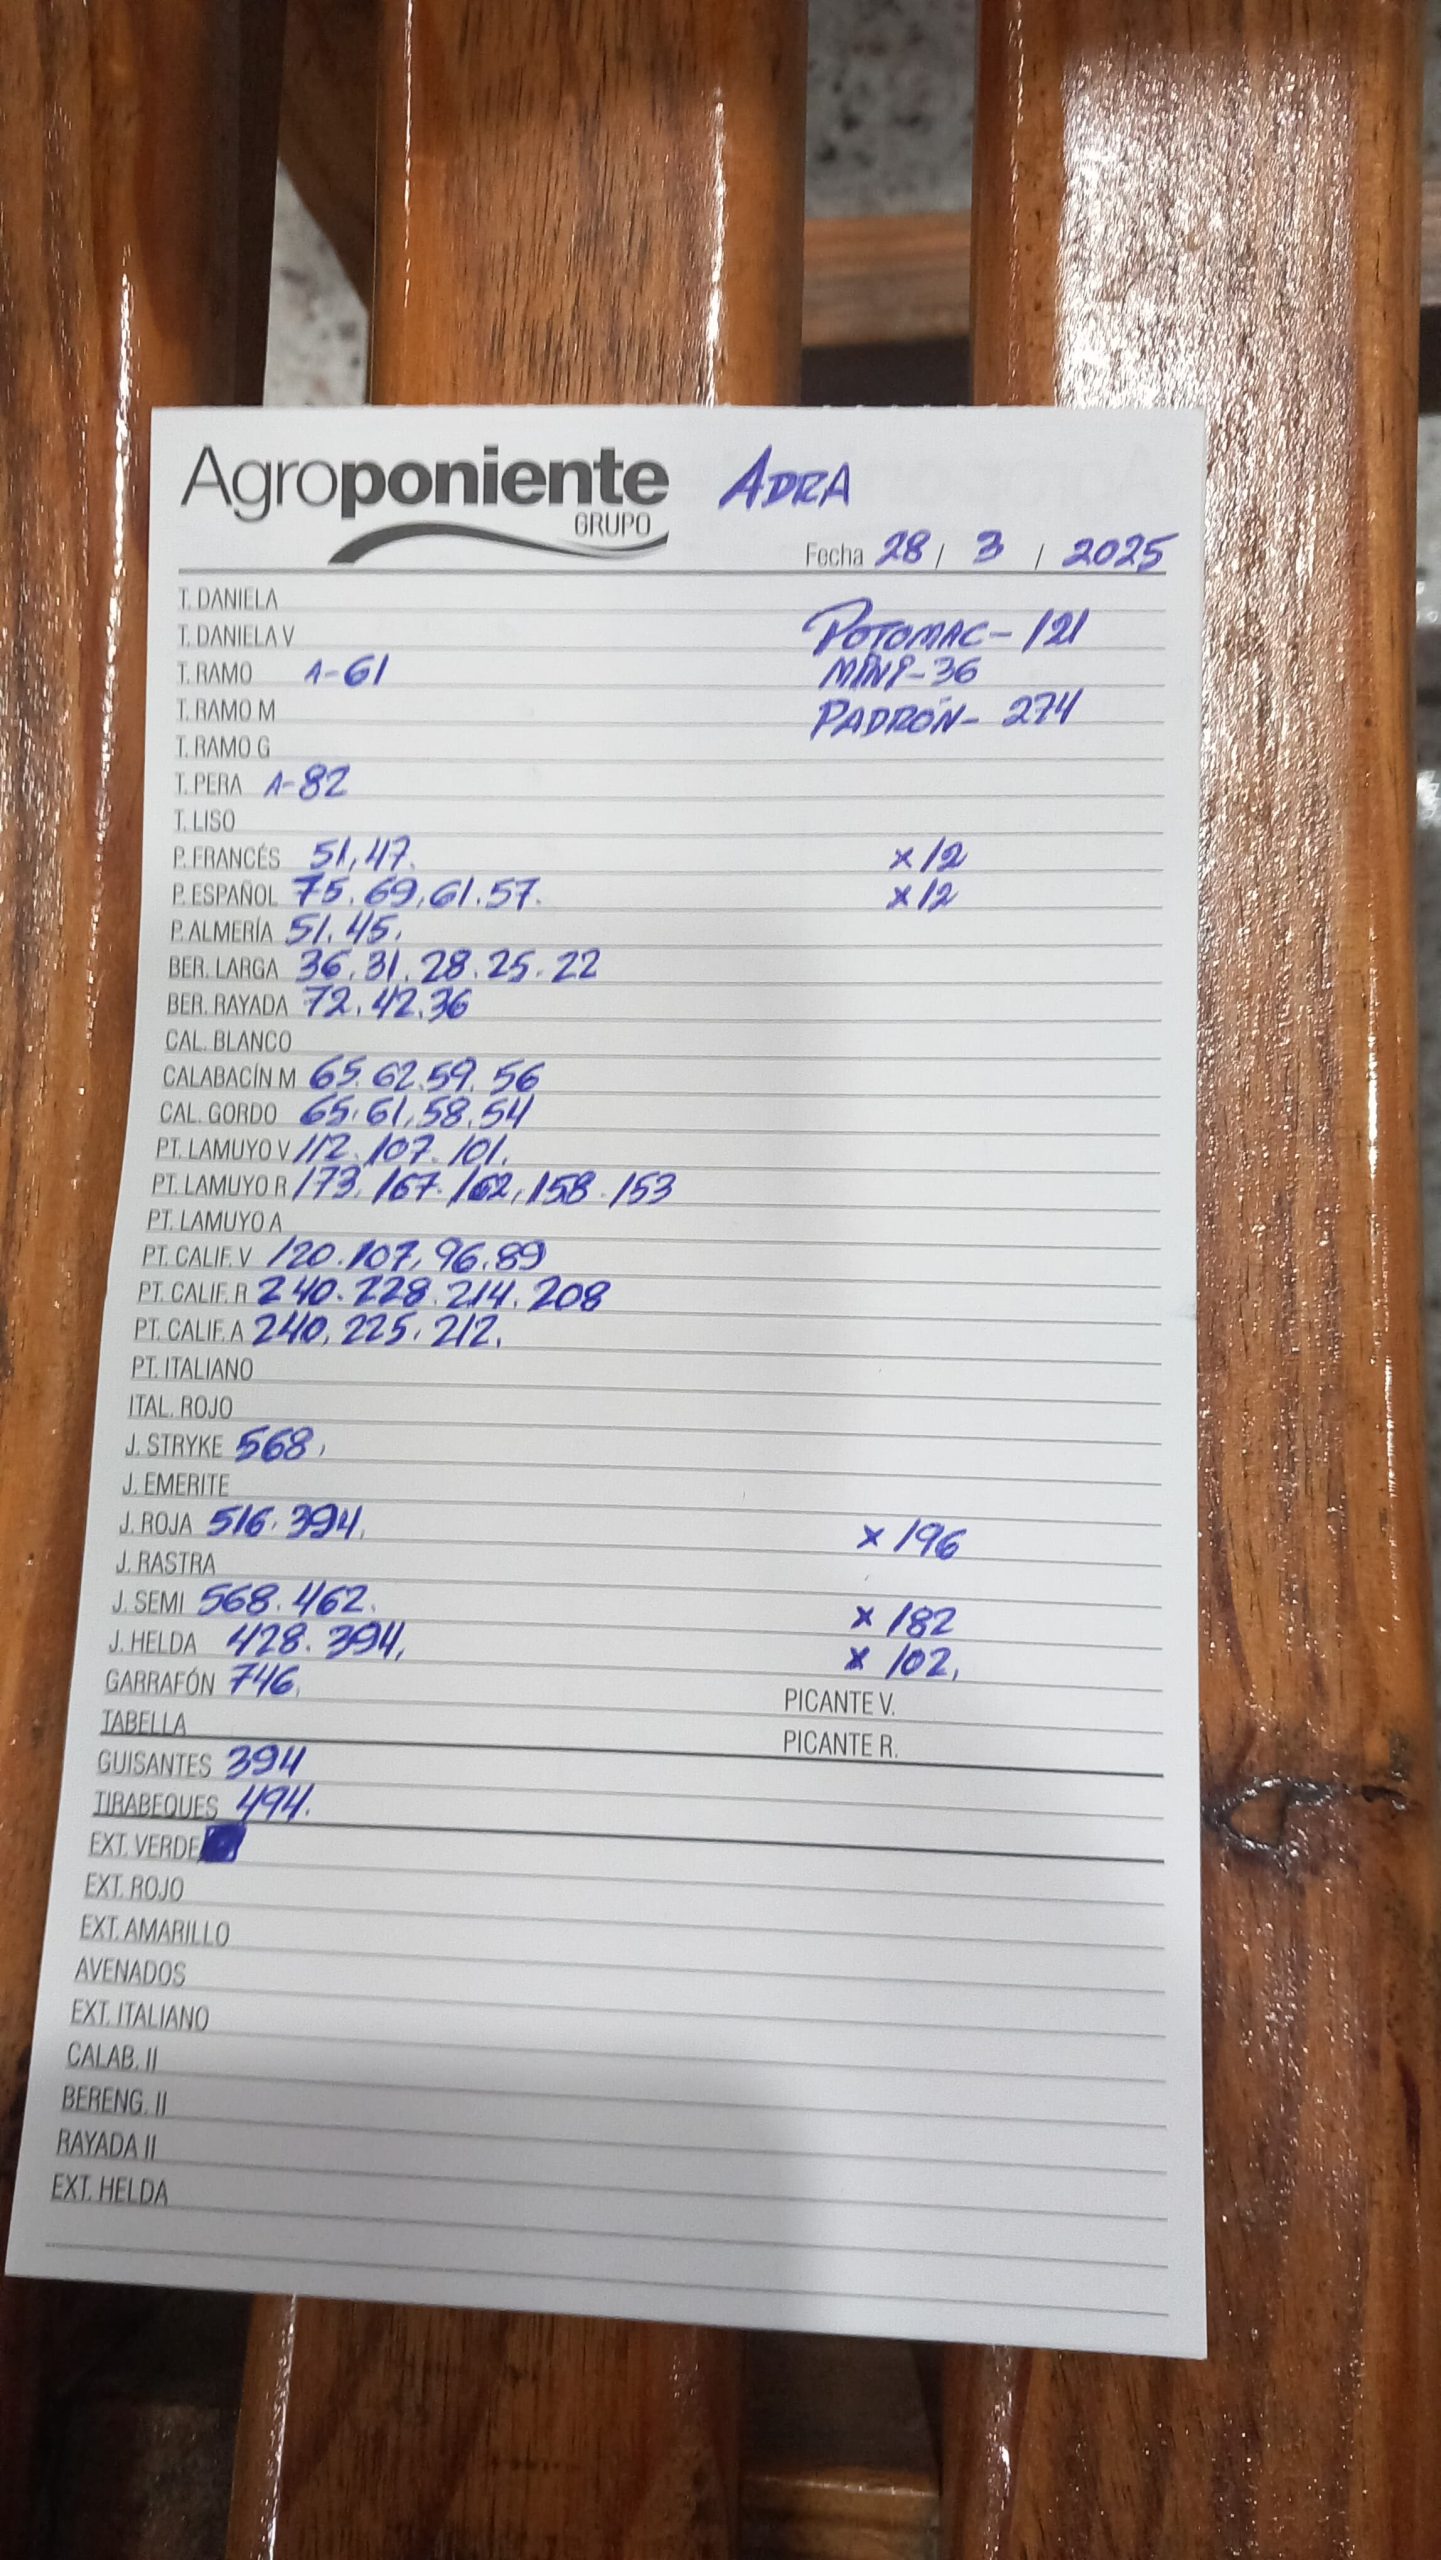 Agroponiente ADRA
GRUPO
Fecha 28 / 3 / 2025
T. DANIELA
T. DANIELA V POTOMAC - 121
T. RAMO A-61 MINI - 36
T. RAMO M PADRÓN - 274
T. RAMO G
T. PERA A-82
T. LISO
P. FRANCÉS 51, 47. x 12
P. ESPAÑOL 75. 69, 61. 57. x 12
P. ALMERÍA 51. 45.
BER. LARGA 36. 31. 28. 25. 22
BER. RAYADA 72. 42. 36
CAL. BLANCO
CALABACÍN M 65. 62. 59. 56
CAL. GORDO 65. 61, 58. 54
PT. LAMUYO V 112. 107. 101.
PT. LAMUYO R 173, 167. 162, 158. 153
PT. LAMUYO A
PT. CALIF. V 120. 107, 96. 89
PT. CALIF. R 240. 228. 214. 208
PT. CALIF. A 240, 225. 212.
PT. ITALIANO
ITAL. ROJO
J. STRYKE 568,
J. EMERITE
J. ROJA 516. 394, x 196
J. RASTRA
J. SEMI 568. 462. x 182
J. HELDA 428. 394, x 102,
GARRAFÓN 746, PICANTE V.
TABELLA PICANTE R.
GUISANTES 394
TIRABEQUES 494.
EXT. VERDE
EXT. ROJO
EXT. AMARILLO
AVENADOS
EXT. ITALIANO
CALAB. II
BERENG. II
RAYADA II
EXT. HELDA